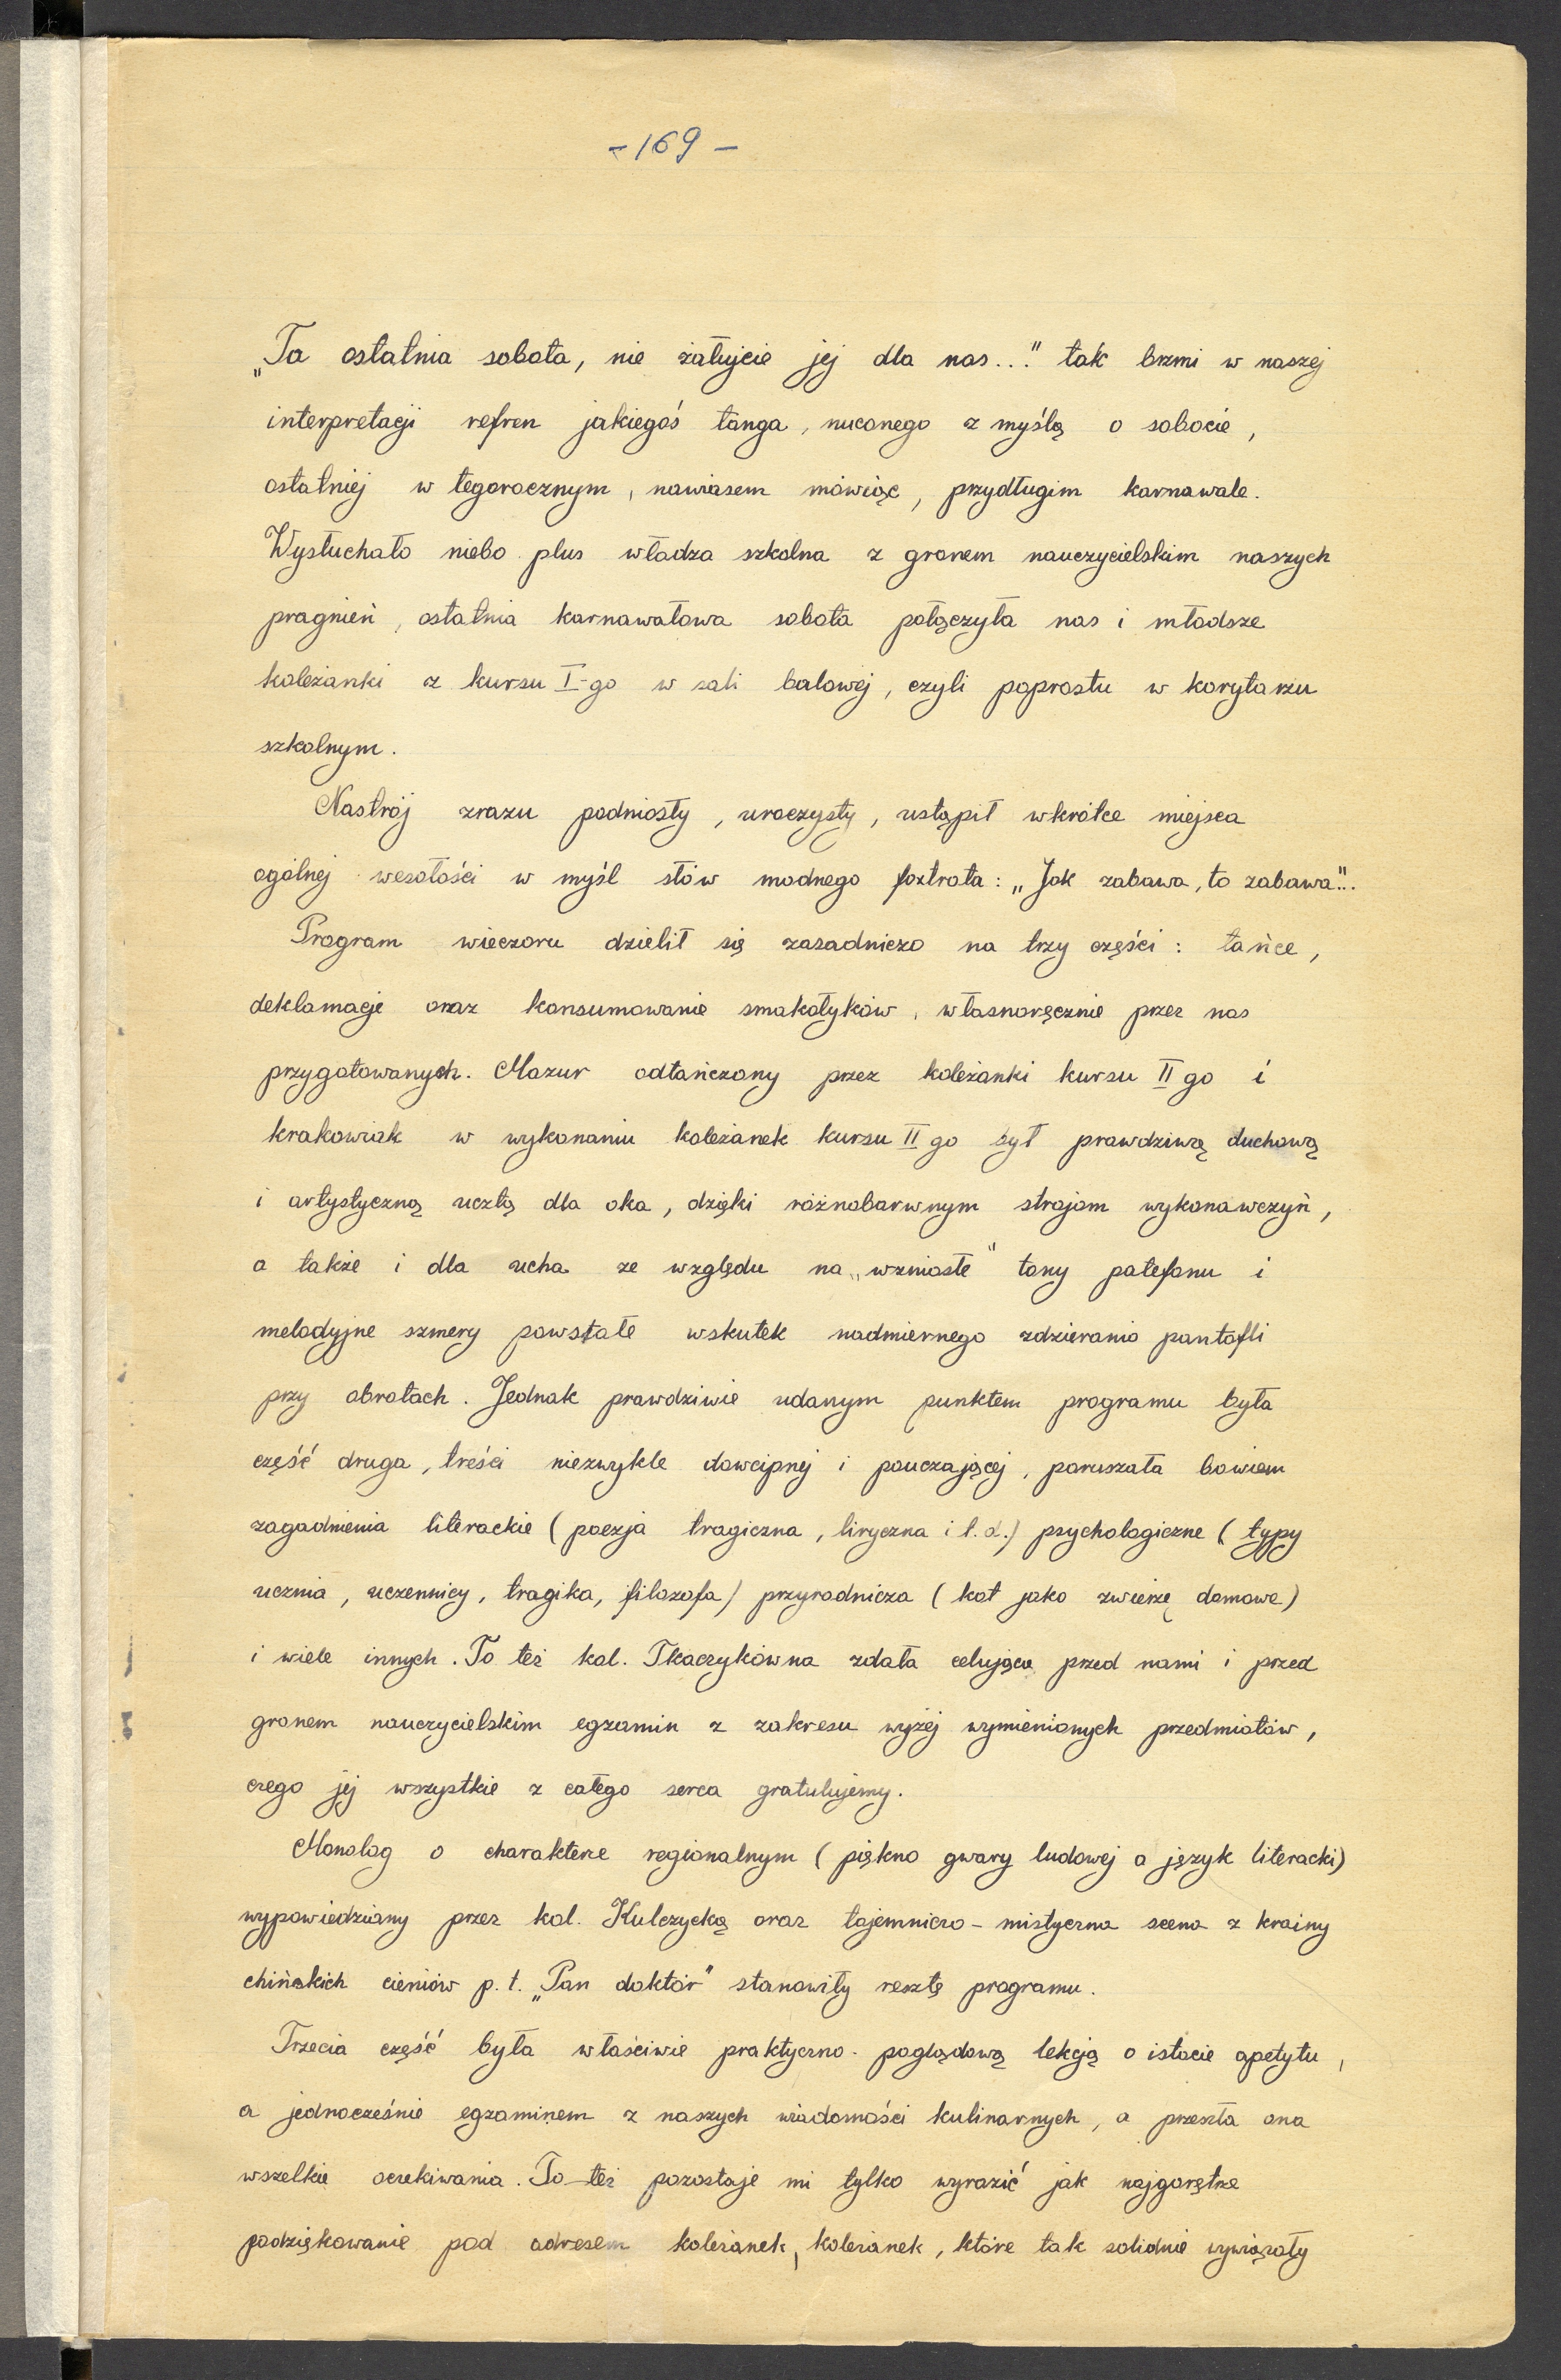 - 169 -
„Ta ostatnia sobota, nie żałujcie jej dla nas..." tak brzmi w naszej
interpretacji refren jakiegoś tanga, nuconego z myślą o sobocie,
ostatniej w tegorocznym, nawiasem mówiąc, przydługim karnawale.
Wysłuchało niebo plus władza szkolna z gronem nauczycielskim naszych
pragnień, ostatnia karnawałowa sobota połączyła nas i młodsze
koleżanki z kursu I-go w sali balowej, czyli poprostu w korytarzu
szkolnym.
Nastrój zrazu podniosły, uroczysty, ustąpił wkrótce miejsca
ogólnej wesołości w myśl słów modnego foxtrota: „Jak zabawa, to zabawa"...
Program wieczoru dzielił się zasadniczo na trzy części: tańce,
deklamacje oraz konsumowanie smakołyków, własnoręcznie przez nas
przygotowanych. Mazur odtańczony przez koleżanki kursu II go i
krakowiak w wykonaniu koleżanek kursu II go był prawdziwą duchową
i artystyczną ucztą dla oka, dzięki różnobarwnym strojom wykonawczyń,
a także i dla ucha ze względu na „wzniosłe" tony patefonu i
melodyjne szmery powstałe wskutek nadmiernego zdzierania pantofli
przy obrotach. Jednak prawdziwie udanym punktem programu była
część druga, treści niezwykle dowcipnej i pouczającej, poruszała bowiem
zagadnienia literackie (poezja tragiczna, liryczna i t.d.) psychologiczne (typy
ucznia, uczennicy, tragika, filozofa) przyrodnicza (kot jako zwierzę domowe)
i wiele innych. To też kol. Tkaczykówna zdała celująco przed nami i przed
gronem nauczycielskim egzamin z zakresu wyżej wymienionych przedmiotów,
czego jej wszystkie z całego serca gratulujemy.
Monolog o charakterze regionalnym (piękno gwary ludowej a język literacki)
wypowiedziany przez kol. Kulczycką oraz tajemniczo-mistyczna scena z krainy
chińskich cieniów p.t. „Pan doktór" stanowiły resztę programu.
Trzecia część była właściwie praktyczno-poglądową lekcją o istocie apetytu,
a jednocześnie egzaminem z naszych wiadomości kulinarnych, a przeszła ona
wszelkie oczekiwania. To też pozostaje mi tylko wyrazić jak najgorętsze
podziękowanie pod adresem koleżanek, koleżanek, które tak solidnie wywiązały